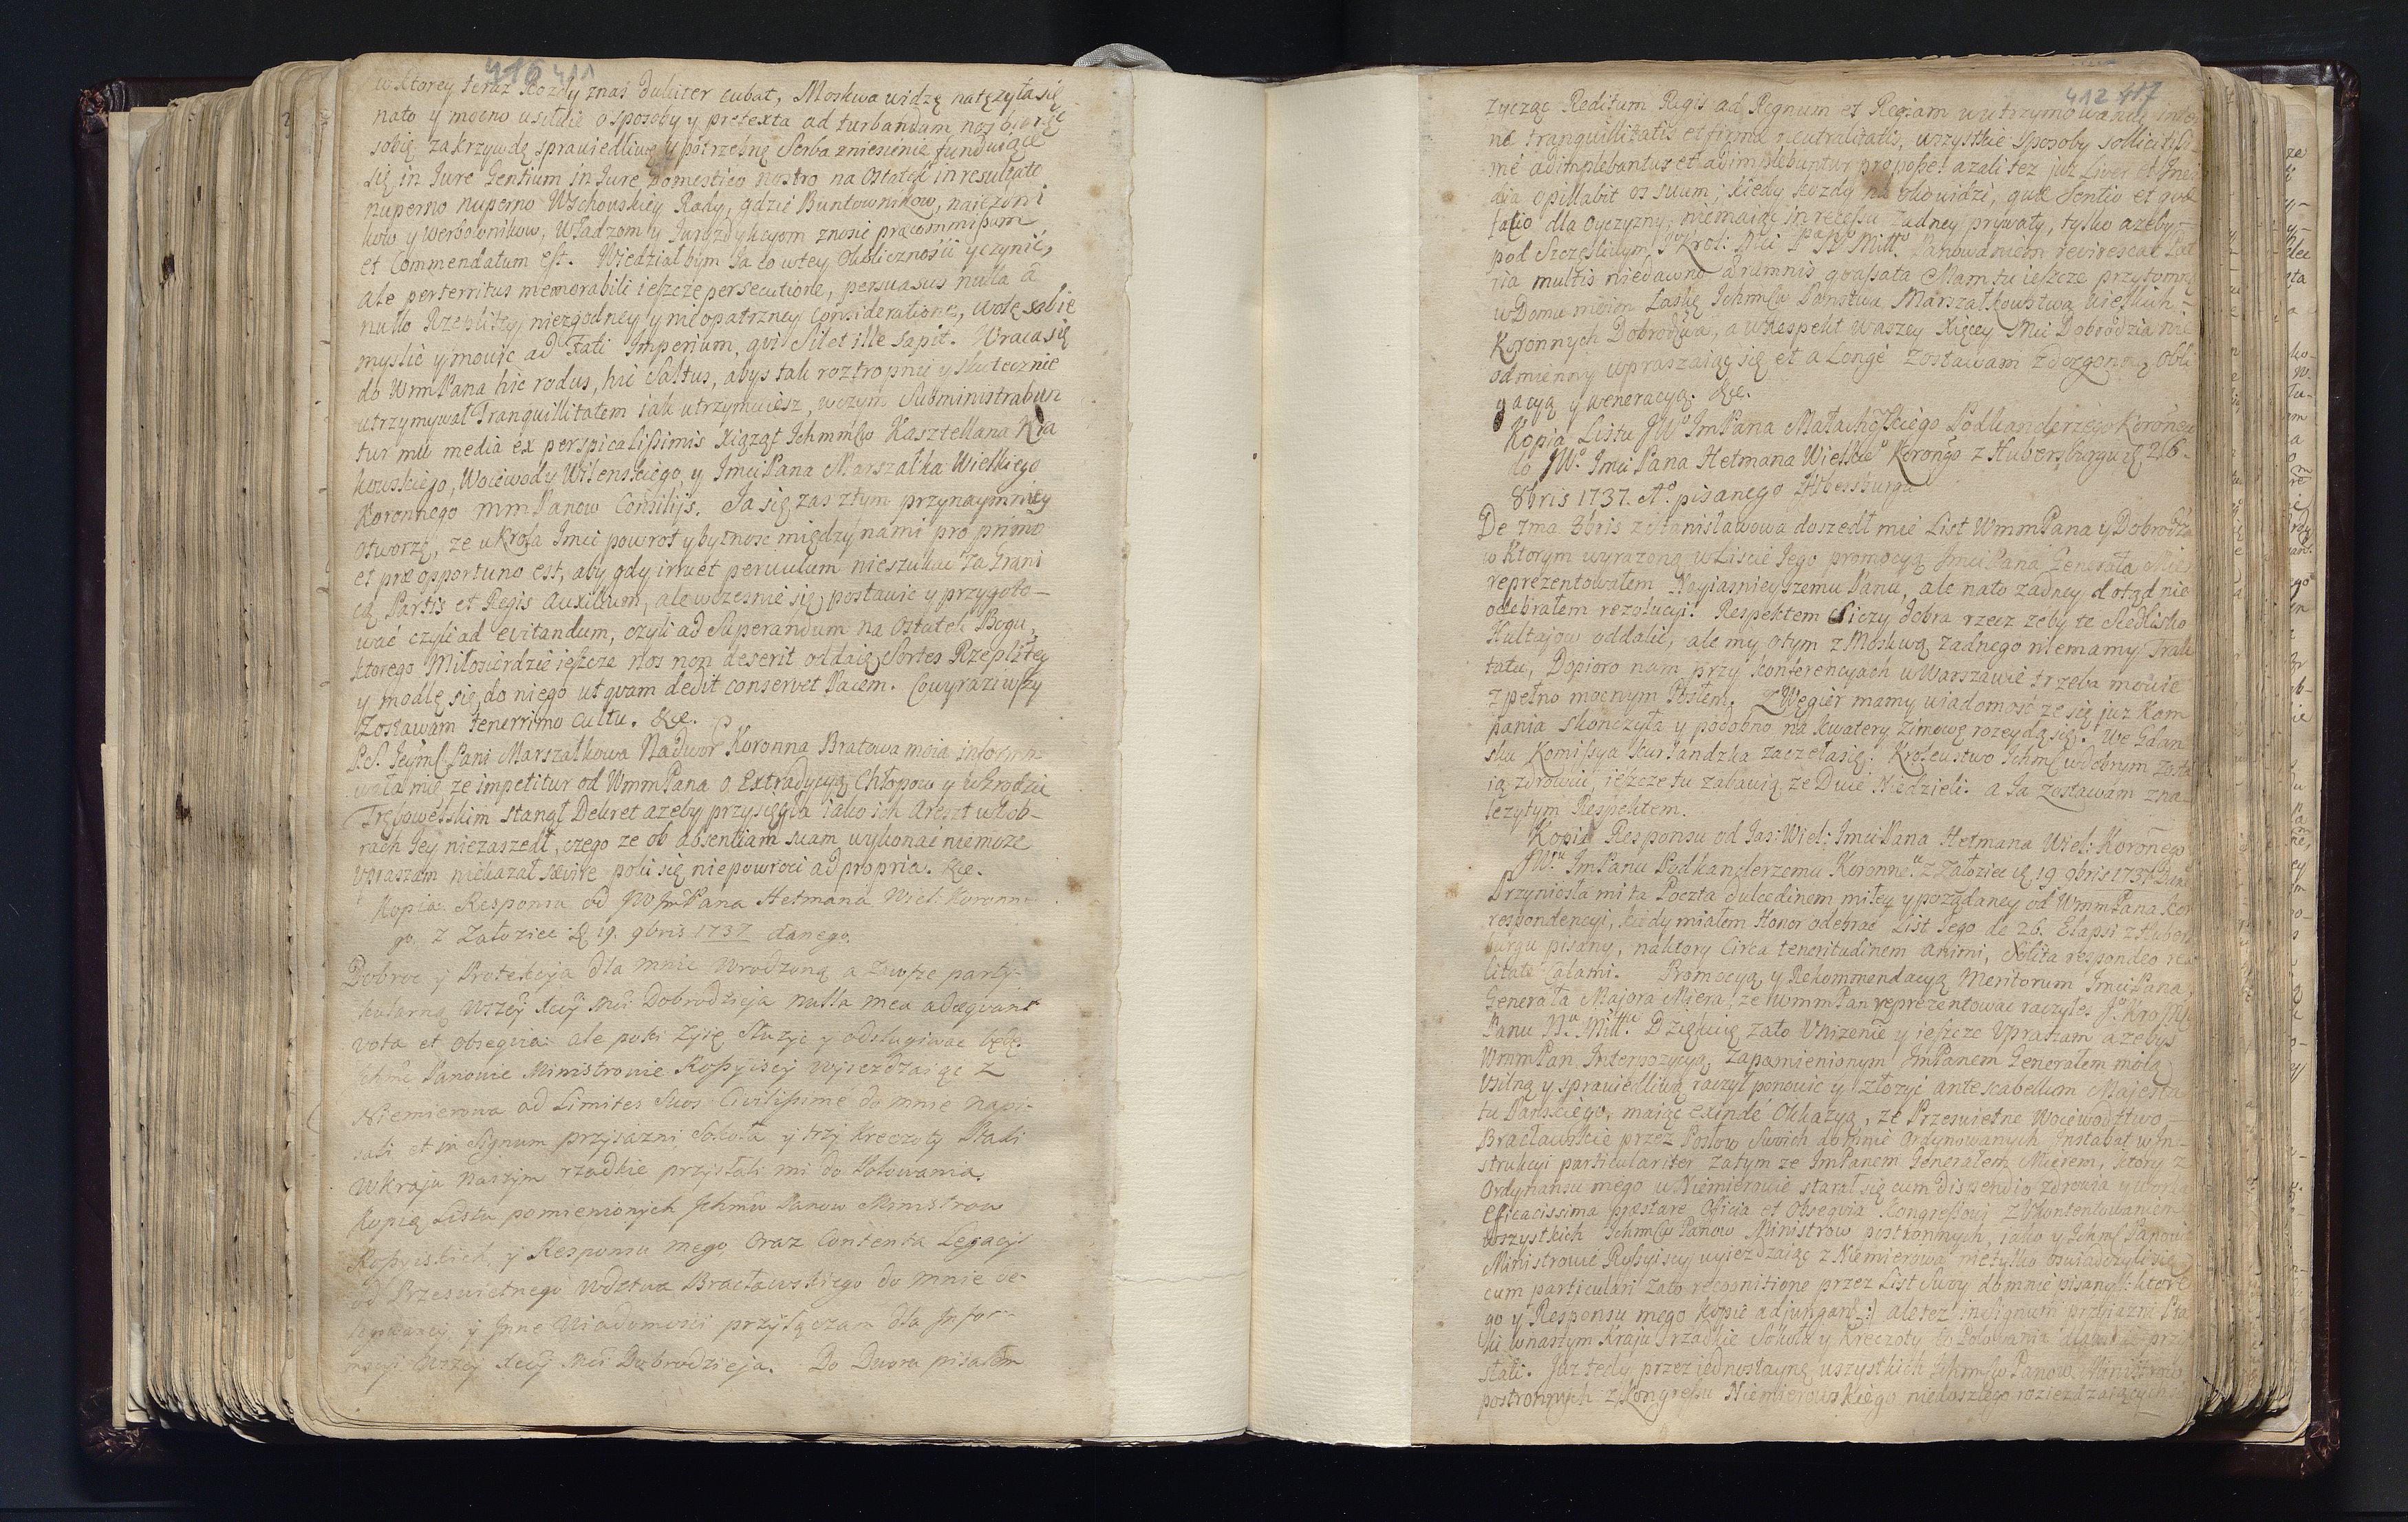 416 411
w ktorey teraz kozdy znas dulciter cubat, Moskwa widzę natęzyła się
nato y mocno usiłuie o sposoby y pretexta ad turbandum nos biorąc
sobię za krzywdę sprawiedliwe y potrzebne Serba zniesienie funduiące
się in Jure Gentium in Jure Domestico nostro na Ostatek in resultato
nuperno nuperno Wschouskiey Rady, gdzie Buntownikow, naiezdni
kow y werbownikow, Władzom y Juryzdykcyom znosic præcommissum
et Commendatum est. Wiedziałbym Ja co w tey Okolicznosci uczynić,
ale perterritus memorabili ieszcze persecutione, persuasus nulla a
nullo Rzeplitey niezgodney y nieopatrzney Consideratione, wolę sobie
myslic y mowic ad Fati Imperium, qvi Silet ille Sapit. Wraca się
do WmmPana hic rodus, hic Saltus, abys tak roztropnie y skutecznie
utrzymywał Tranquillitatem iak utrzymuiesz, w czym Subministrabun
tur mu media ex perspicalissimis Xiąząt Ichmmsciw Kasztellana Kra
kowskiego, Woiewody Wilenskiego, y Imci Pana Marszałka Wielkiego
Koronnego mmPanow Consiliis. Ja się zas z tym przynaymniey
otworzę, ze u Krola Imci powrot y bytnosc między nami pro primo
et præ opportuno est, aby gdy irruet periculum nieszukac za Grani
cą Partis et Regis Auxilium, ale wczesnie się postawic y przygoto-
wać czyli ad evitandum, czyli ad Superandum na Ostatek Bogu,
ktorego Miłosierdzie ieszcze nos non deserit oddaię Sortes Rzeplitey
y modlę się do niego ut qvam dedit conservet Pacem. Co wyraziwszy
Zostawam tenerrimo cultu. &c.
P.S. Jeymsc Pani Marszałkowa Nadwor Koronna Bratowa moia informo-
wała mię ze impetitur od WmmPana o Extradycyą Chłopow y w Grodzie
Trębowelskim stanął Dekret azeby przysięgła iako ich Areszt w dob-
rach Jey niezaszedł, czego ze ob absentiam suam wykonac niemoze
Upraszam niekazał sævire poki się niepowroci ad propria. &c.
Kopia Responsu od JW JmPana Hetmana Wiel: Koronne-
go z Załoziec d 19. 9bris 1737 danego.
Dobroc y Protekcyja dla mnie wrodzoną a zawsze party-
kularną WXcey Xcey Mci Dobrodzieja nulla mea adæqvant
vota et obseqvia ale poki zyię Słuzyc y odsługiwac będę.
Ichmc Panowie Ministrowie Rossyiscy wyiezdzaiąc z
Niemierowa ad Limites Suos Civilissime do mnie napi-
sali et in Signum przyiazni Sokoła y trzy Kreczoty Ptaki
w kraju naszym rzadkie przysłali mi do Polowania.
Kopią Listu pomienionych Ichmciw Panow Ministrow
Rossyiskich, y Responsu mego, oraz Contenta Legacyi
od Przeswietnego Wdztwa Bracławskiego do mnie de-
legowaney, y Inne Wiadomosci przyłączam dla Infor-
macyi WXcey Xcey Mci Dobrodzieja. Do Dworu pisałem
412 417
zycząc Reditum Regis ad Regnum et Regiam w utrzymowaniu inter
næ tranquillitatis et firmæ neutralitatis, wszystkie Sposoby sollicitissi
me adimplebantur et adimplebuntur pro posse! azali tez juz Livor et Invi
dia opillabit os suum, kiedy kozdy qvæ Sentio et qvæ
facio dla Oyczyzny, niemaiąc in recessu zadney prywaty, tylko azeby
pod Szczęsliwym Jo Krol: Mci Pa No Miłł. Panowaniem reviresceret Pat
ria multis niedawno ærumnis grassata Mam tu ieszcze przytomnę
w Domu moim Łaskę Ichmciw Panstwa Marszałkowstwa Wielkich
Koronnych Dobrodziw, a w Respekt Waszey Xięcey Mci Dobrodzia nie
odmienny wpraszaiąc się et a Longe Zostawam z dozgonną Obli
gacyą y weneracyą. &c.
Kopia Listu JWo ImPana Małachowskiego Podkanclerzego Koronneo
do JWo Imci Pana Hetmana Wielkieo Korongo z Hubersburgu d 26.
8bris 1737. Ao pisanego
De 7ma 8bris z Stanisławowa doszedł mie List WmmPana y Dobrodza
w Ktorym wyrazoną w Liscie Jego promocyą Imci Pana Generała Mier
reprezentowałem Nayiasnieyszemu Panu, ale nato zadney dotąd nie
odebrałem rezolucyi. Respektem Siczy dobra rzecz zeby te Siedlisko
Hultajow oddalic, ale my o tym z Moskwą zadnego niemamy Trak
tatu, Dopioro nam przy konferencyach w Warszawie trzeba mowic
z pełno mocnym Posłem. Z Węgier mamy wiadomosc ze się juz Kam
pania skonczyła y podobno na kwatery Zimowe rozeydą się. We Gdan
sku Komissya Kurlandzka zaczeła się. Krolewstwo Ichmc w dobrym zosta
ią zdrowiu, ieszcze tu zabawią ze Dwie Niedzieli. a Ja zostawam z na
lezytym Respektem.
Kopia Responsu od Jas: Wiel: Imci Pana Hetmana Wiel: Koronego
JW.u ImPanu Podkanclerzemu Koronne.u z Załoziec d 19 9bris 1737
Przyniosła mi ta Poczta dulcedinem miłey y poządaney od WmmPana kor
respondencyi, kiedy miałem Honor odebrac List Jego de 26. Elapsi z Hubers
burgu pisany, na ktory Circa teneritudinem animi, Solita respondeo rea
litate Calami. Promocyą y Rekommendacyą Meritorum Imci Pana
Generała Majora Miera! ze WmmPan reprezentowac raczyłes Jo Kro Mci
Panu N.u Miłł.u Dziękuię zato Unizenie y ieszcze Upraszam azebys
WmmPan Interpozycyą zapomienionym ImPanem Generałem moią
Usilną y sprawiedliwą raczył ponowic y złozyć ante scabellum Majesta
tu Panskiego, maiąc exinde Okkazyą, ze Przeswietne Woiewodztwo
Bracławskie przez Posłow Swoich do mnie Ordynowanych Instabat w In-
strukcyi particulariter Zatym ze ImPanem Generałem Mierem, ktory z
Ordynansu mego w Niemierowie starał się cum dispendio zdrowia y
Efficacissima præstare Officia et Obsequia Congressowi z Ukontentowaniem
wszystkich Ichmciw Panow Ministrow postronnych, iako y Ichmc Panowie
Ministrowie Rossyiscy wyiezdzaiąc z Niemierowa nietylko oswiadczyli się
cum particulari zato recognitione przez List Swoy do mnie pisany (: ktore
go y Responsu mego kopie adjungam :) ale tez in signum przyiazni Pta
ki w naszym Kraju rzadkie Sokoła y Kreczoty do Polowania przy
słali. Juz tedy przez iednostayne wszystkich Ichmciw Panow Ministrow
postronnych z Kongressu Niemierowskiego niedoszłego roziezdzaiących